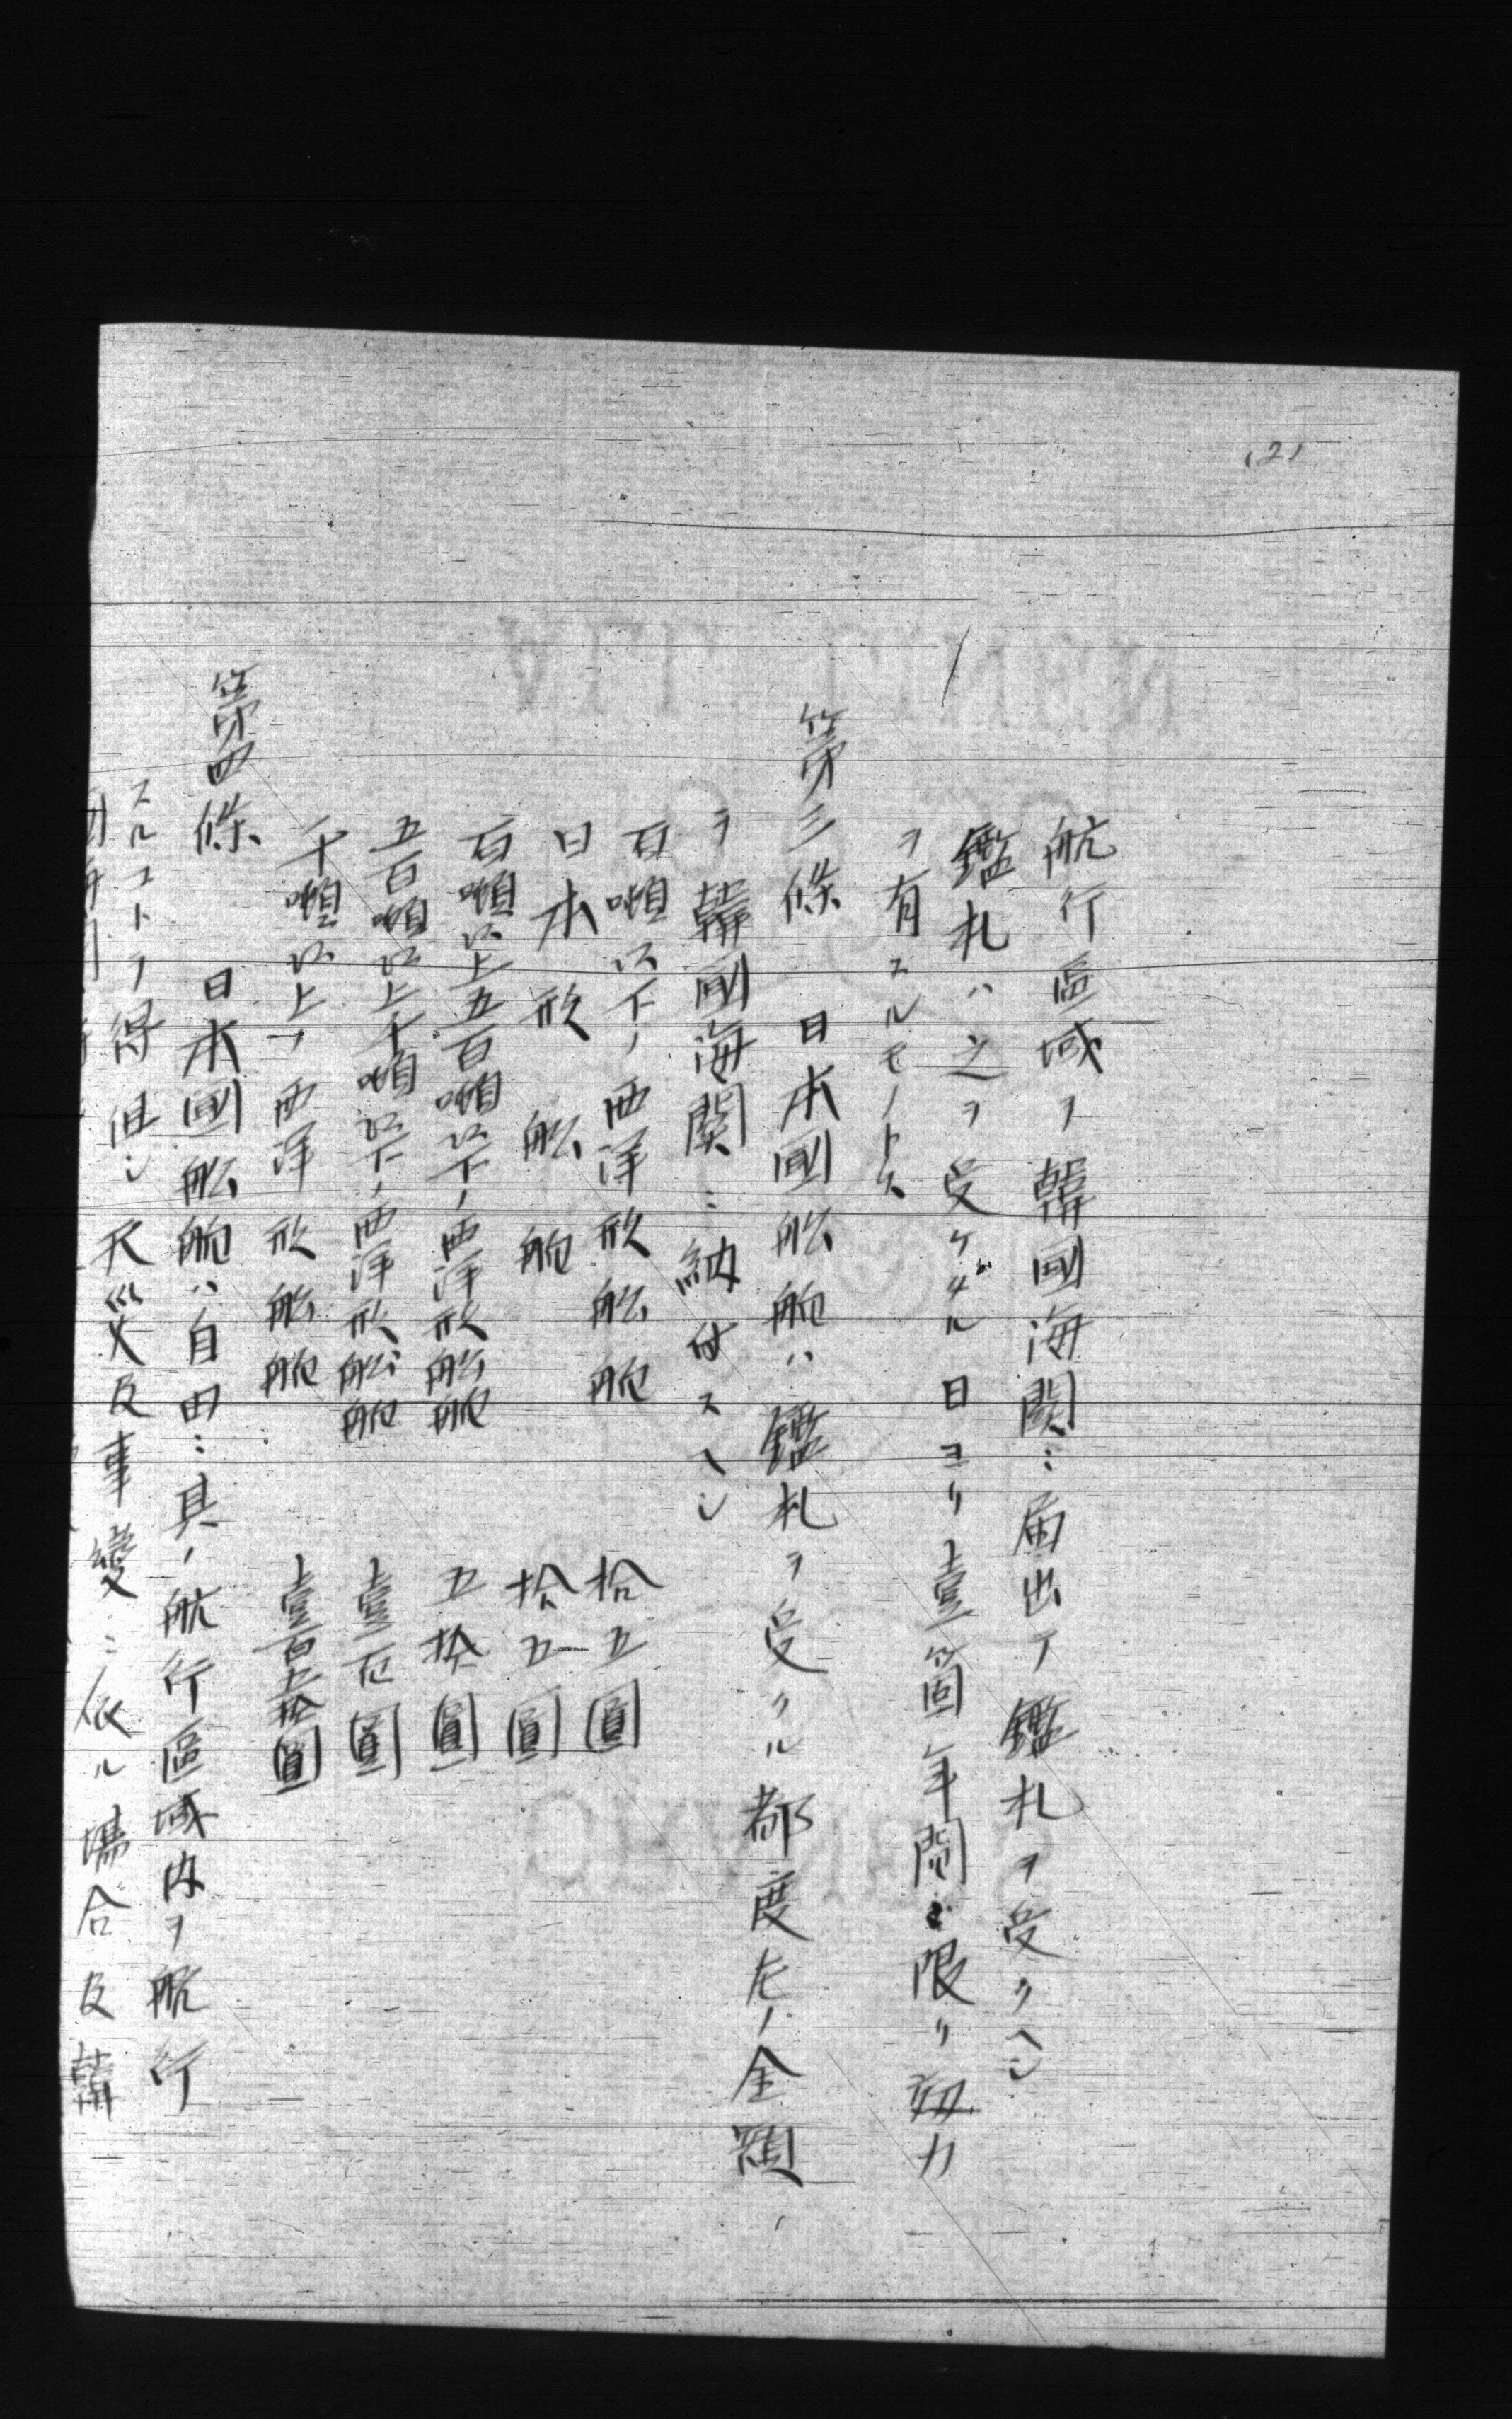 (2)
航行區域ヲ韓國海關ニ届出テ鑑札ヲ受クヘシ
鑑札ハ之ヲ受ケタル日ヨリ壹箇年間ニ限リ効力
ヲ有スルモノトス
第三條 日本國船舶ハ鑑札ヲ受クル都度左ノ金額
ヲ韓國海關ニ納付スヘシ
百噸以下ノ西洋形船舶 拾五圓
日本形船舶 拾五圓
百噸以上五百噸以下ノ西洋形船舶 五拾圓
五百噸以上千噸以下ノ西洋形船舶 壹百圓
千噸以上ノ西洋形船舶 壹百五拾圓
第四條 日本國船舶ハ自由ニ其ノ航行區域内ヲ航行
スルコトヲ得但シ天災及事變ニ依ル場合及韓